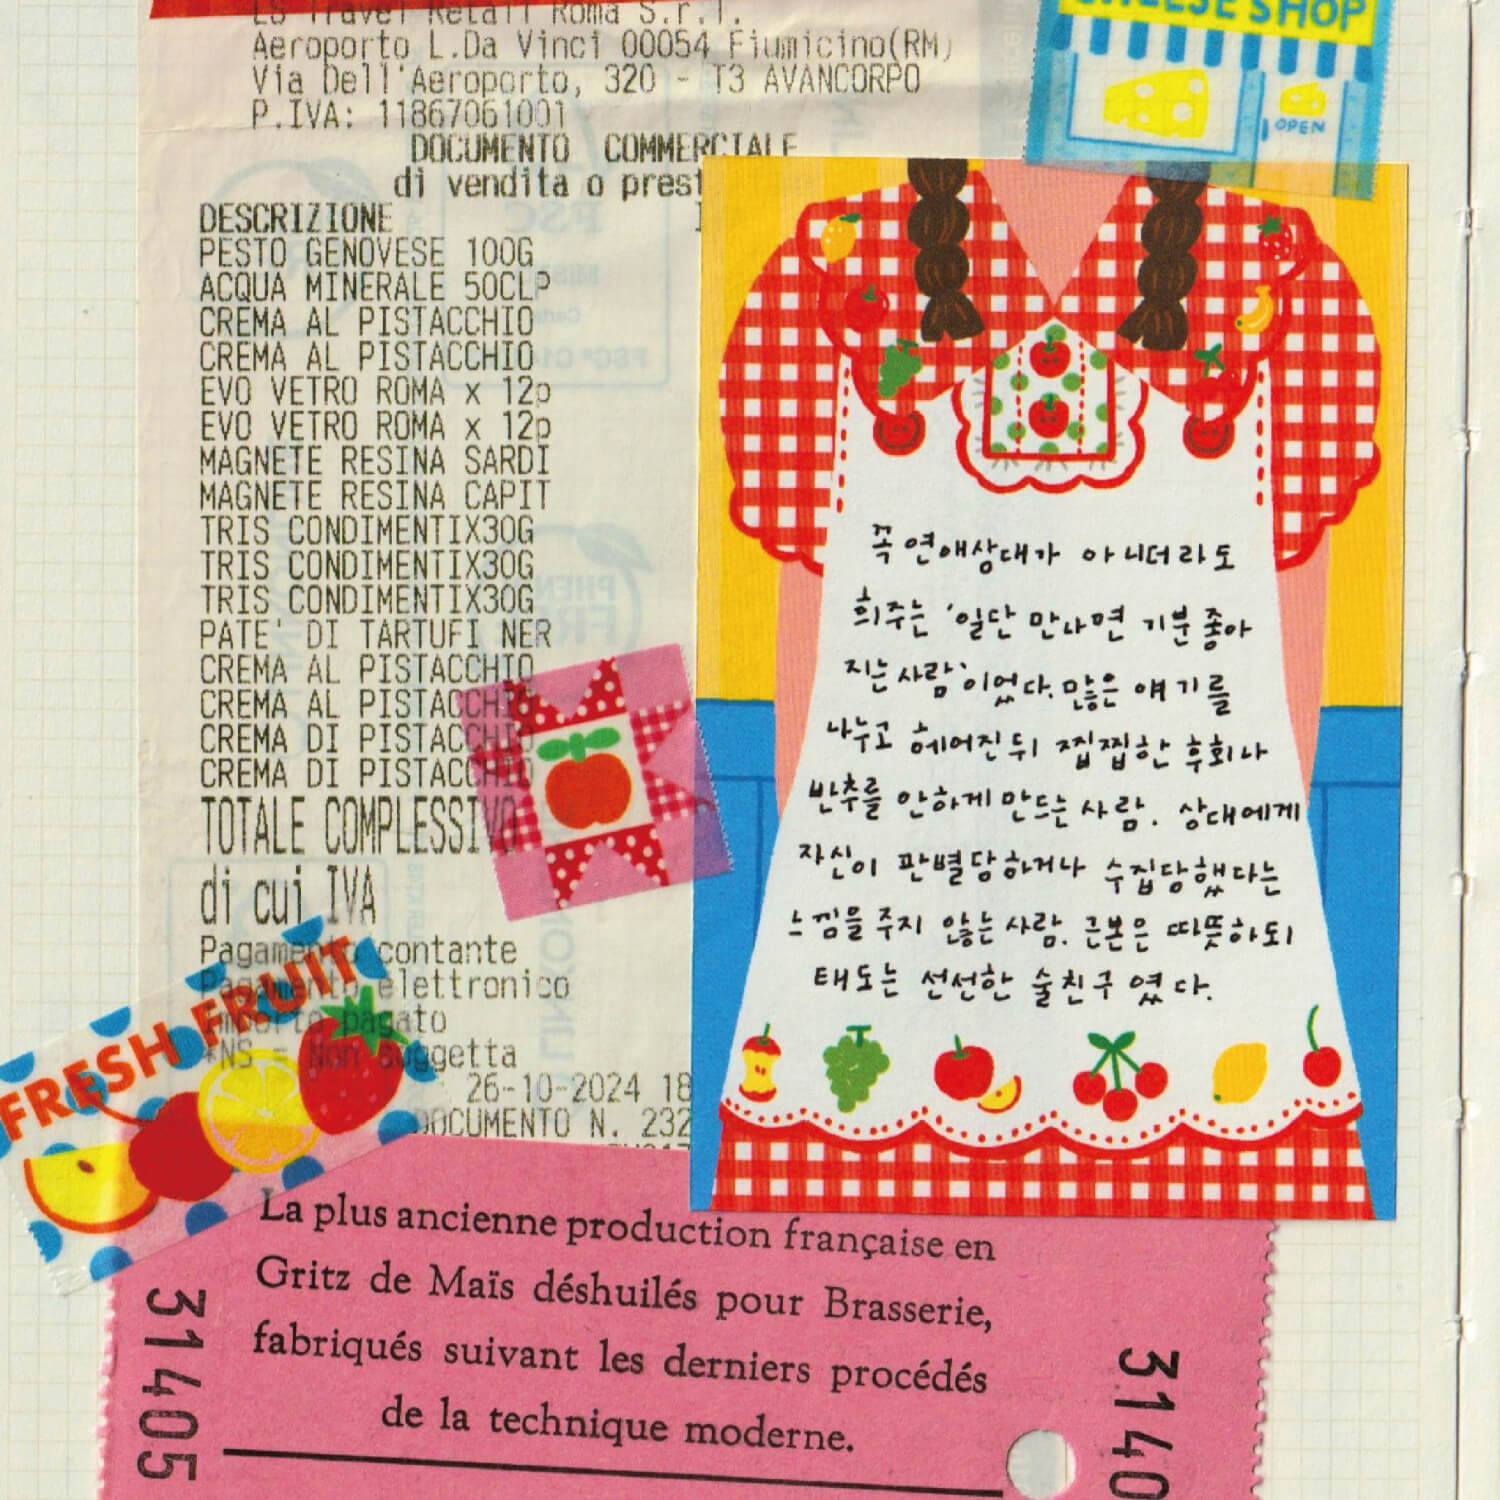 LS Travel Retail Roma S.r.l.
Aeroporto L.Da Vinci 00054 Fiumicino(RM)
Via Dell'Aeroporto, 320 - T3 AVANCORPO
P.IVA: 11867061001
DOCUMENTO COMMERCIALE
di vendita o prest
DESCRIZIONE
PESTO GENOVESE 100G
ACQUA MINERALE 50CLP
CREMA AL PISTACCHIO
CREMA AL PISTACCHIO
EVO VETRO ROMA x 12p
EVO VETRO ROMA x 12p
MAGNETE RESINA SARDI
MAGNETE RESINA CAPIT
TRIS CONDIMENTIX30G
TRIS CONDIMENTIX30G
TRIS CONDIMENTIX30G
PATE' DI TARTUFI NER
CREMA AL PISTACCHIO
CREMA AL PISTACCHIO
CREMA DI PISTACCHIO
CREMA DI PISTACCHIO
TOTALE COMPLESSIVO
di cui IVA
Pagamento contante
Pagamento elettronico
Importo pagato
*NS = Non soggetta
26-10-2024 18
DOCUMENTO N. 232
CHEESE SHOP
OPEN
꼭 연애상대가 아니더라도
희주는 '일단 만나면 기분 좋아
지는 사람'이었다. 많은 얘기를
나누고 헤어진 뒤 찝찝한 후회나
반추를 안하게 만드는 사람. 상대에게
자신이 판별당하거나 수집당했다는
느낌을 주지 않는 사람. 근본은 따뜻하되
태도는 선선한 술친구였다.
FRESH FRUIT
La plus ancienne production française en
Gritz de Maïs déshuilés pour Brasserie,
fabriqués suivant les derniers procédés
de la technique moderne.
31405
3140